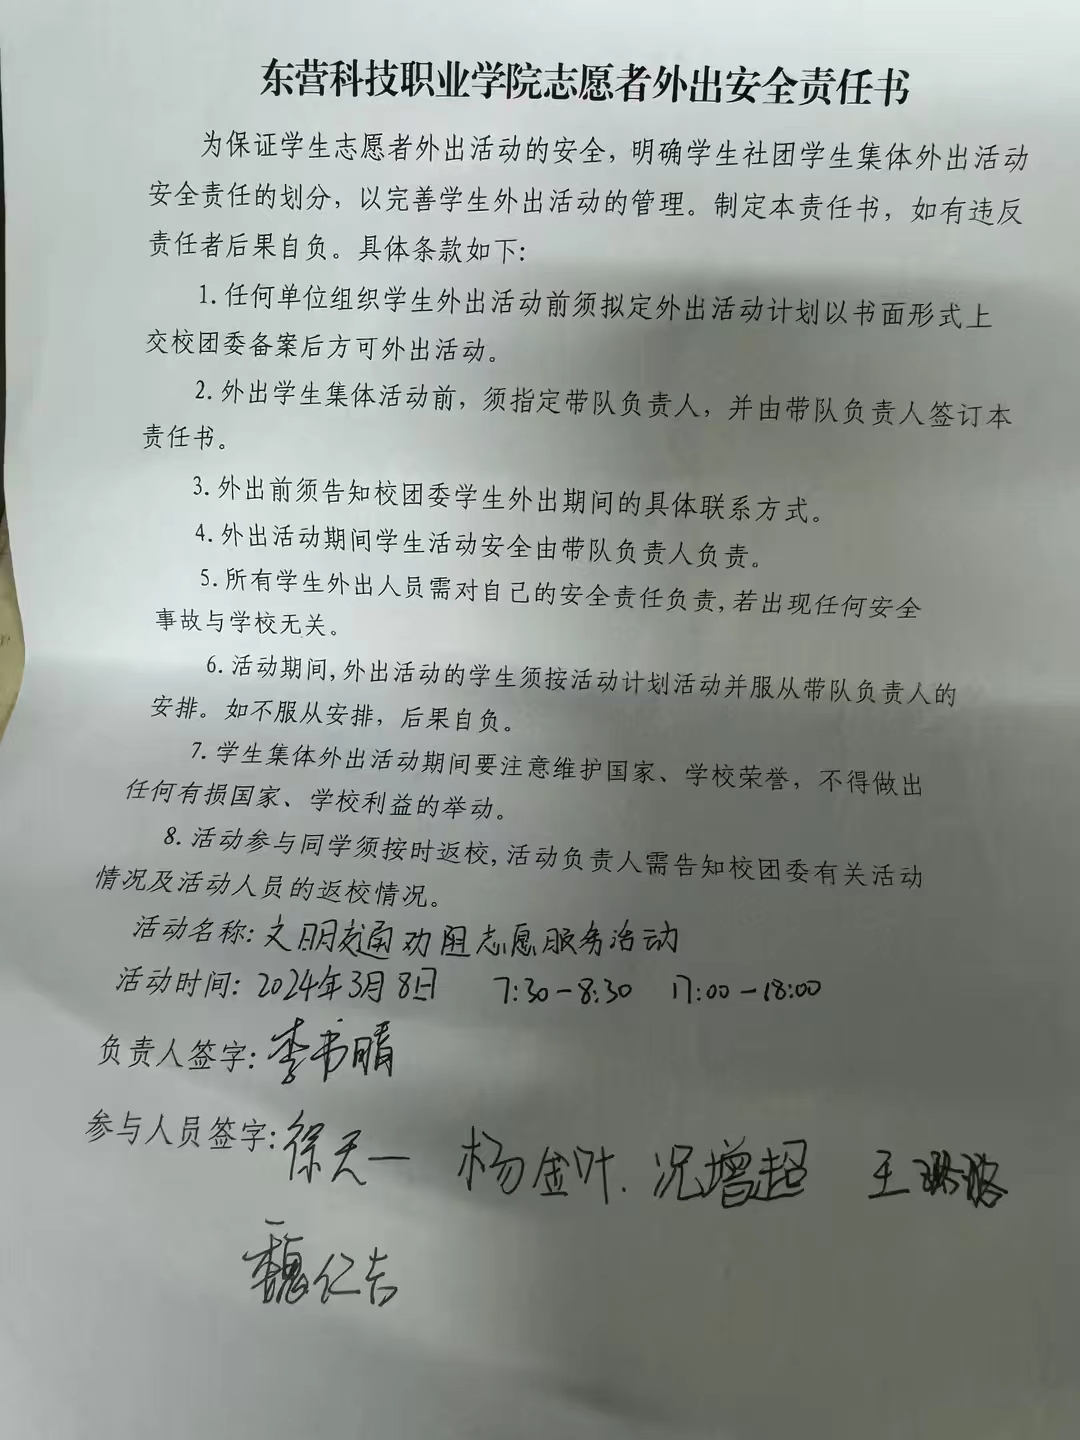 东营科技职业学院志愿者外出安全责任书
为保证学生志愿者外出活动的安全，明确学生社团学生集体外出活动
安全责任的划分，以完善学生外出活动的管理。制定本责任书，如有违反
责任者后果自负。具体条款如下：
1.任何单位组织学生外出活动前须拟定外出活动计划以书面形式上
交校团委备案后方可外出活动。
2.外出学生集体活动前，须指定带队负责人，并由带队负责人签订本
责任书。
3.外出前须告知校团委学生外出期间的具体联系方式。
4.外出活动期间学生活动安全由带队负责人负责。
5.所有学生外出人员需对自己的安全责任负责,若出现任何安全
事故与学校无关。
6.活动期间,外出活动的学生须按活动计划活动并服从带队负责人的
安排。如不服从安排，后果自负。
7.学生集体外出活动期间要注意维护国家、学校荣誉，不得做出
任何有损国家、学校利益的举动。
8.活动参与同学须按时返校,活动负责人需告知校团委有关活动
情况及活动人员的返校情况。
活动名称:文明交通劝阻志愿服务活动
活动时间:2024年3月8日 7:30-8:30 17:00-18:00
负责人签字:李书晴
参与人员签字:徐天一 杨金叶. 况增超 王
魏仁吉